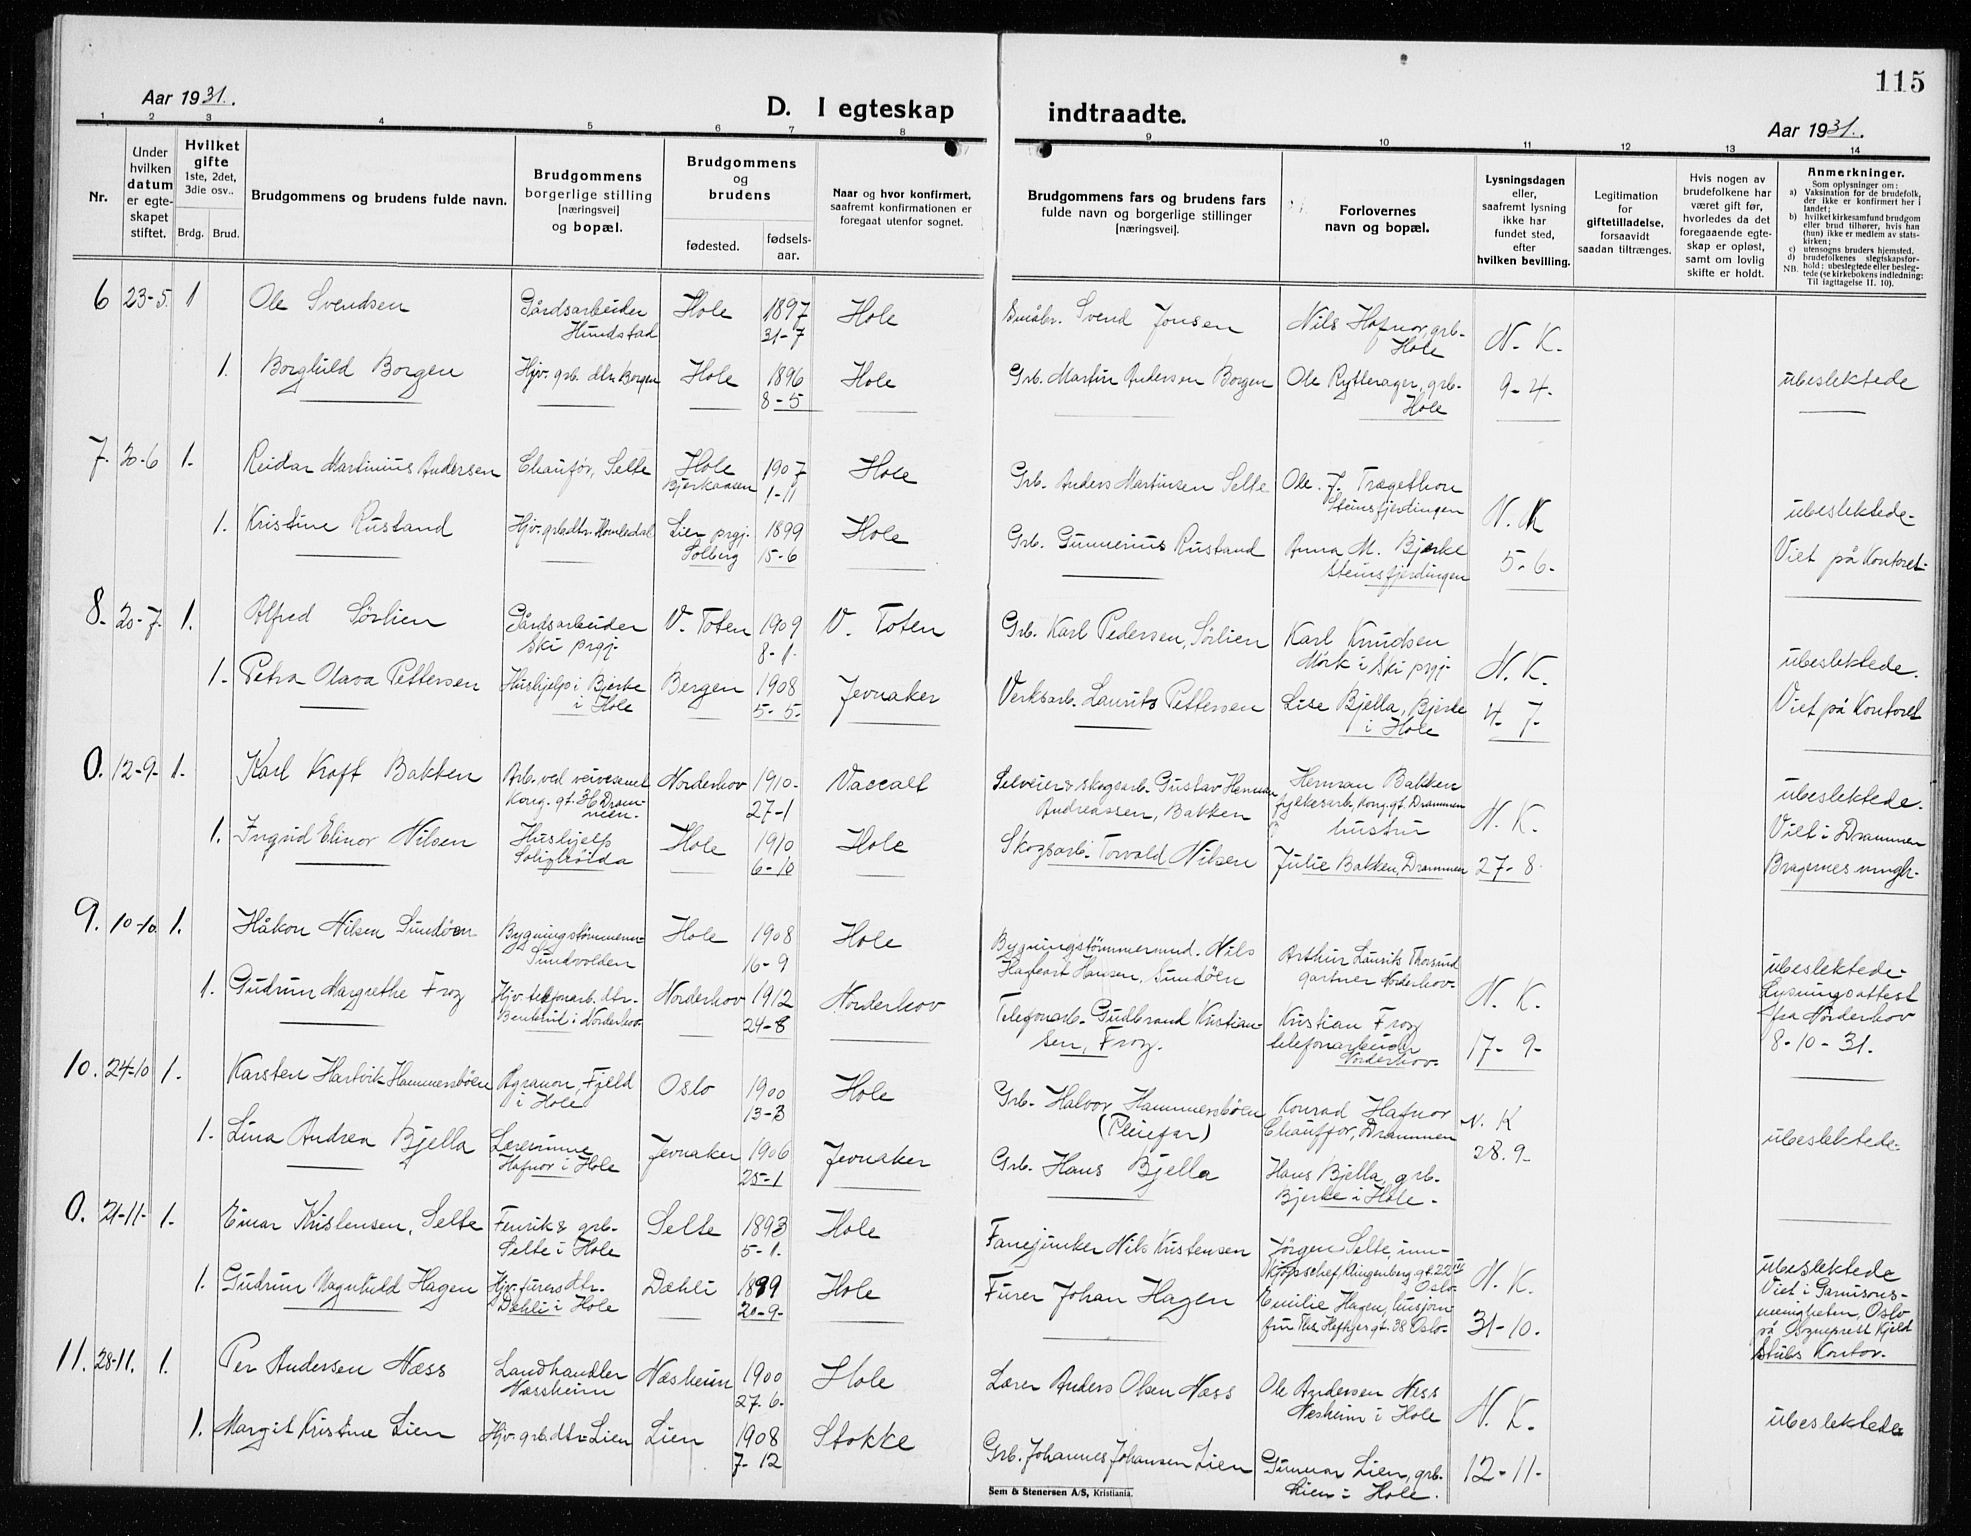 115
Aar 1931.
D. I egteskap
indtraadte.
Aar 1931.
1 2 3 4 5 6 7 8 9 10 11 12 13 14
Nr.
Under hvilken datum er egteskapet stiftet.
Hvilket gifte
1ste, 2det, 3die osv..
Brdg. Brud.
Brudgommens og brudens fulde navn.
Brudgommens borgerlige stilling [næringsvei] og bopæl.
Brudgommens og brudens
fødested.
fødselsaar.
Naar og hvor konfirmert, saafremt konfirmationen er foregaat utenfor sognet.
Brudgommens fars og brudens fars fulde navn og borgerlige stillinger [næringsvei].
Forlovernes navn og bopæl.
Lysningsdagen eller, saafremt lysning ikke har fundet sted, efter hvilken bevilling.
Legitimation for giftetilladelse, forsaavidt saadan tiltrænges.
Hvis nogen av brudefolkene har været gift før, hvorledes da det foregaaende egteskap er opløst, samt om lovlig skifte er holdt.
Anmerkninger.
Som oplysninger om:
a) Vaksination for de brudefolk, der ikke er konfirmert her i landet;
b) hvilket kirkesamfund brudgom eller brud tilhører, hvis han (hun) ikke er medlem av statskirken;
c) utensogns bruders hjemsted.
d) brudefolkenes slegtskapsforhold; ubeslegtede eller beslegtede (se kirkebokens indledning:
NB. Til iagttagelse II. 10).
6 23-5. 1 Ole Svendsen Gårdsarbeider Hundstad Hole 1897 31-7 Hole Småbr. Svend Jonsen Nils Hafnor, grb. Hole N. K.
1. Borghild Borgen Hjv. grb. dtr. Borgen Hole 1896 8-5 Hole Grb. Martin Andersen Borgen Ole Rytterager, grb. Hole 9-4. ubeslektede
7. 20-6 1. Reidar Martinius Andersen Chaufør, Selte Hole Bjerkaasen 1907 1-11 Hole Grb. Anders Martinsen Selte Ole. J. Trægethon Steinsfjerdingen N. K ubeslektede.
1. Kristine Rustand Hjv. grb.dtr. Homledal Lier prgj. Solberg 1899 15-6 Hole Grb. Gunnerius Rustand Anna M. Bjerke Steinsfjerdingen 5-6- Viet på Kontoret.
8. 20-7. 1. Alfred Sørlien Gårdsarbeider Ski prgj. V. Toten 1909 8-1. V. Toten Grb. Karl Pedersen, Sørlien Karl Knudsen Mørk i Ski prgj. N. K. ubeslektede.
1. Petra Olava Pettersen Hushjelp i Bjerke i Hole Bergen 1908 5-5- Jevnaker Verksarb. Laurits Pettersen Lise Bjella, Bjerke i Hole 4-7- Viet på Kontoret
0. 12-9- 1. Karl Kroft Bakken Arb. ved veivesenet Kong. gt. Drammen. Norderhov 1910- 27-1 Selveier & skogsarb. Gustav Herman Andreassen, Bakken Herman Bakken fylkesarb, Kong. gt. Drammen N. K. ubeslektede.
1. Ingrid Elinor Nilsen Hushjelp Hole 1910 6-10 Hole Skogsarb. Torvald Nilsen hustru Julie Bakken, Drammen 27-8. Viet i Drammen Bragernes mngh.
9. 10-10. 1. Håkon Nilsen Sundøen Bygningstømmerm. Sundvolden Hole 1908 16-9 Hole Bygningstømmermd. Nils Hagbart Hansen, Sundøen Arthur Laurits Thorsrud gartner Norderhov. N. K. ubeslektede-
1. Gudrun Margrethe Frog Hjv. telefonarb. dtr. Benterud i Norderhov Norderhov 1912 24-8 Norderhov Telefonarb. Gudbrand Kristiansen, Frog. Kristian Frog telefonarbeider Norderhov. 17-9- Lysningsattest fra Norderhov 8-10-31.
10. 24-10 1. Karsten Hartvik Hammersbøen Agronom, Fjeld i Hole Oslo 1900 13-3 Hole Grb. Halvor Hammersbøen (Pleiefar) Konrad Hafnor Chauffør, Drammen N. K
1. Lina Andrea Bjella Lærerinne Hafnor i Hole Jevnaker 1906 25-1 Jevnaker Grb. Hans Bjella Hans Bjella, grb. Bjerke i Hole. 28.9- ubeslektede.
0. 21-11- 1. Einar Kristensen, Selte Fenrik & grb. Selte i Hole Selte 1893 5-1. Hole Fanejunker Nils Kristensen Jørgen Selte, innkjøpschef, Klingenberg gt. 22 IV Oslo. N. K. ubeslektede
1. Gudrun Magnhild Hagen Hjv. furers dtr. Dæhli i Hole Dæhli 1899 20-9- Hole Furer Johan Hagen Emilie Hagen, husjomfru Ths Heftyes gt. 38 Oslo. 31-10. Viet i Garnisonsmenigheten, Oslo på Sogneprest Kjeld Stubs Kontor.
11. 28-11. 1. Per Andersen Næss Landhandler Næssheim Næsheim 1900 27.6. Hole Lærer Anders Olsen Næss Ole Andersen Næss Næsheim i Hole N. K.
1. Margit Kristine Lien Hjv. grb. dtr. Lien Lien 1908 7-12 Stokke Grb. Johannes Johansen Lien Gunnar Lien, grb. Lien i Hole. 12-11- ubeslektede
Sem & Stenersen A/S, Kristiania.